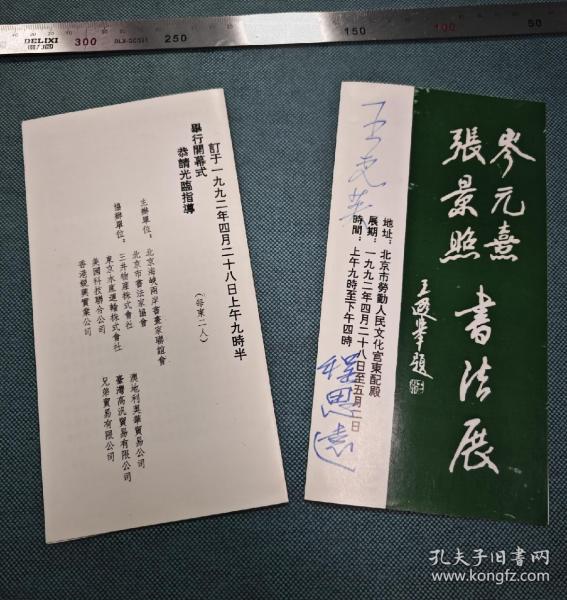 DELIXI
300
250
150
100
50
訂于一九九二年四月二十八日上午九時半
舉行開幕式
恭請光臨指導
（每柬二人）
主辦單位：北京海峽兩岸書畫家聯誼會
北京市書法家協會
協辦單位：三井物產株式會社
東京水產運輸株式會社
美國科技聯合公司
香港銳興實業公司
澳地利奧華貿易公司
臺灣高汎貿易有限公司
兄弟貿易有限公司
岑元熹
張景照
書法展
地址：北京市勞動人民文化宮東配殿
展期：一九九二年四月二十八日至五月二日
時間：上午九時至下午四時
程思遠
孔夫子旧书网
www.kongfz.com